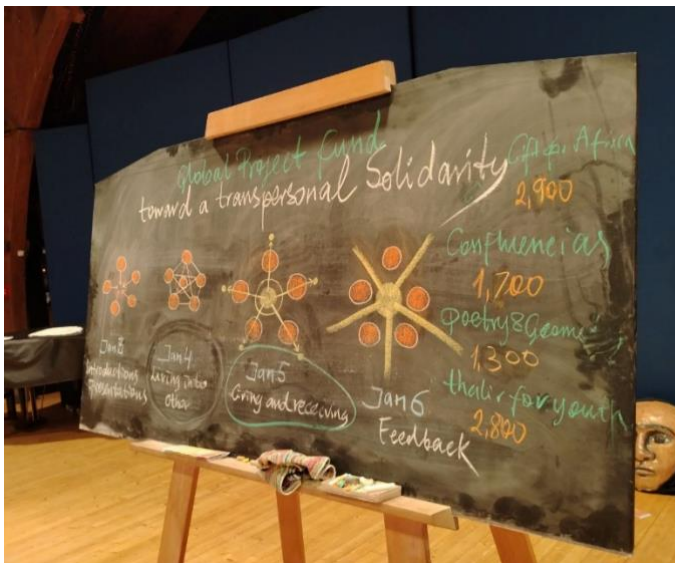 Global Project Fund
toward a transpersonal Solidarity
Jan 3
Introductions
Presentations
Jan 4
Living into
Other
Jan 5
Giving and receiving
Jan 6
Feedback
Gift for Africa
2,900
Confluencias
1,700
Poetry & Geome
1,300
for youth
2,800